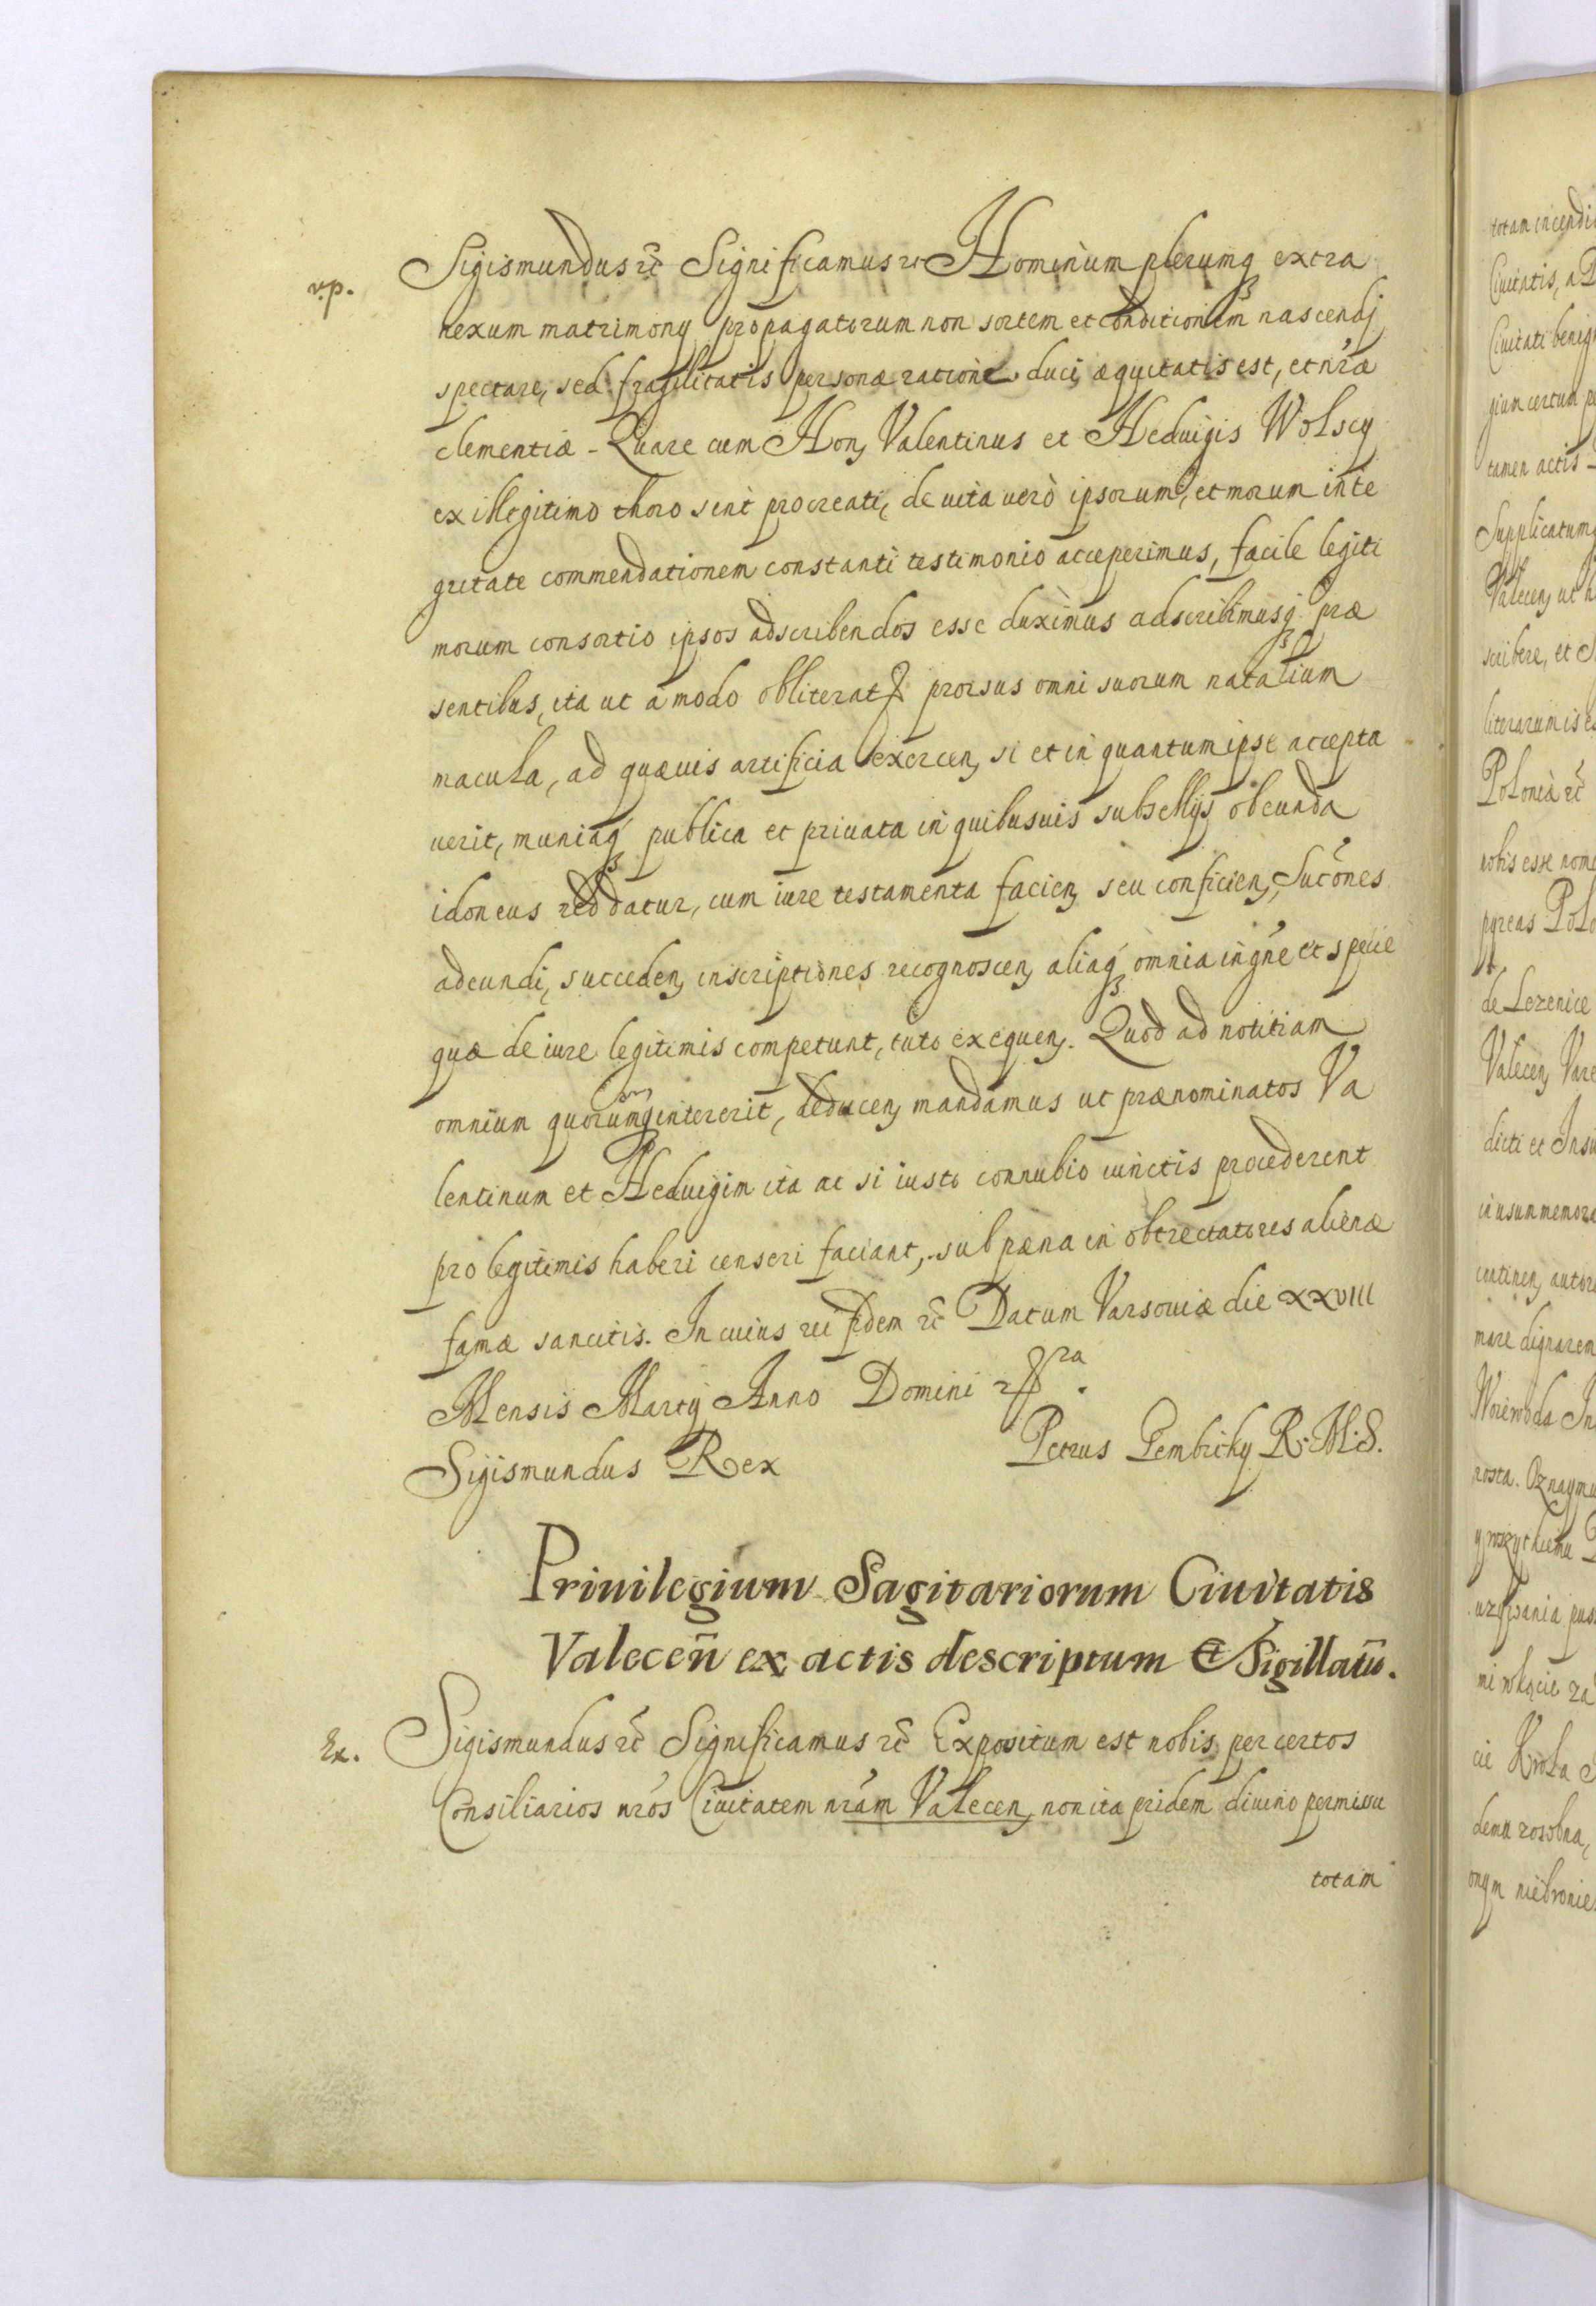 v.p.
Sigismundus etc̄ Significamus etc Hominum plerumq₃ extra
nexum matrimonÿ propagatorum non sortem et conditionem nascendj
spectare, sed fragilitatis personæ ratione duci æquitatis est, et nr̃æ
clementiæ - Quare cum Hon, Valentinus et Heduigis Wolscy
ex illegitimo thoro sint procreati, de uita uerò ipsorum, et morum inte
gritate commendationem constanti testimonio acceperimus, facile legiti
morum consortio ipsos adscribendos esse duximus adscribimusq₃ præ
sentibus, ita ut a modo obliterat prorsus omni suorum natalium
macula, ad quæuis artificia exercen, si et in quantum ipse accepta
uerit, muniaq₃ publica et priuata in quibusuis subsellÿs obeunda
idoneus reddatur, cum iure testamenta facien, seu conficien, Suc̃ones
adeundi, succeden, inscriptiones recognoscen, aliaq₃ omnia in gñe et specie
quæ de iure legitimis competunt, tuto exequen. Quod ad notitiam
omnium quorum intererit, deducen, mandamus ut prænominatos Va
lentinum et Heduigim ita ac si iusto connubio iunctis procederent
pro legitimis haberi censeri faciant, sub pæna in obtrectatores alienæ
famæ sancitis. In cuius rei fidem etc̄ Datum Varsouiæ die XXVIII
Mensis Martÿ Anno Domini ra.
Sigismundus Rex
Petrus Gembicky R: M: S.
Priuilegium Sagitariorum Ciuitatis
Valecen̄ ex actis descriptum et Sigillatū.
Ex.
Sigismundus etc̄ Significamus etc̄ Expositum est nobis per certos
Consiliarios nr̃os Ciuitatem nr̃am Valecen, non ita pridem diuino permissu
totam
totam incendi
Ciuitatis, a
Ciuitati benig
gium certum pe
tamen actis
Supplicatum
Valecen, ut
scribere, et
literarum is es
Polonia etc̄
nobis esse nom
Polo
de Lezenice
Valecen, Vare
dicti et Insu
in usum memora
continen, autor
mare dignarem
Woiewoda In
rosta. Oznaymu
y wszytkiemu
mi
cie Krola
onym niebronie